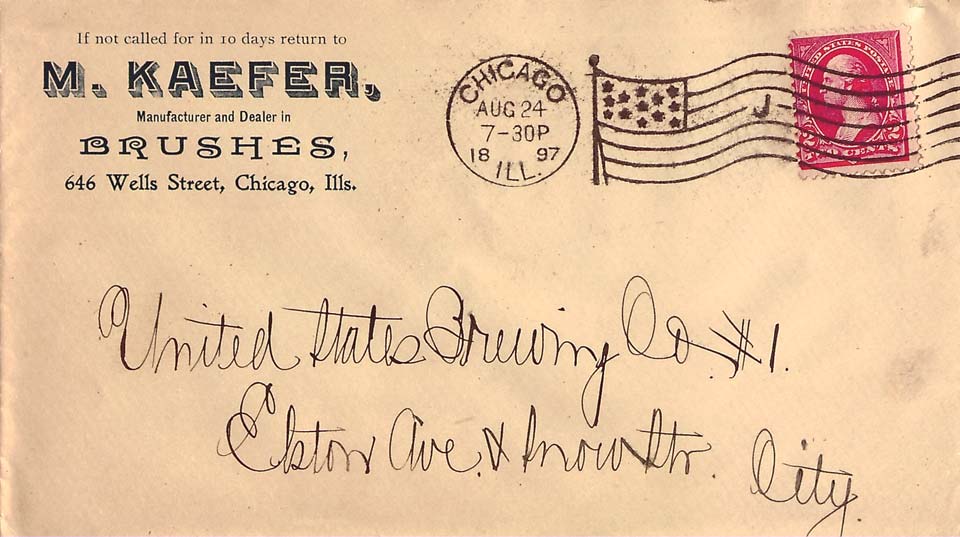 If not called for in 10 days return to
M. KAEFER,
Manufacturer and Dealer in
BRUSHES,
646 Wells Street, Chicago, Ills.
CHICAGO
AUG 24
7-30P
18 97
ILL.
J
UNITED STATES POSTAGE
2 TWO CENTS 2
United States Brewing Co. #1.
Elston Ave. & Snow Str.
City.